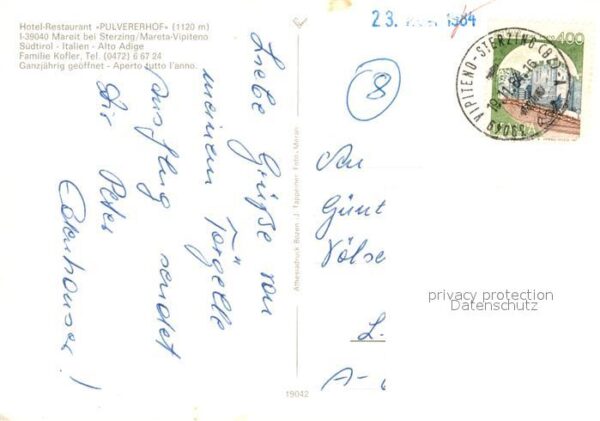 Hotel-Restaurant «PULVERERHOF» (1120 m)
I-39040 Mareit bei Sterzing/Mareta-Vipiteno
Südtirol - Italien - Alto Adige
Familie Kofler, Tel. (0472) 6 67 24
Ganzjährig geöffnet - Aperto tutto l'anno.
Liebe Grüße von
meinem Törgelle
ausflug sendet
Dir Peter
Athesiadruck Bozen - J. Tappeiner Foto - Meran
19042
23. 1984
8
400
VIPITENO-STERZING (BZ)
39049
An
Günt
Völse
L.
A-
privacy protection
Datenschutz